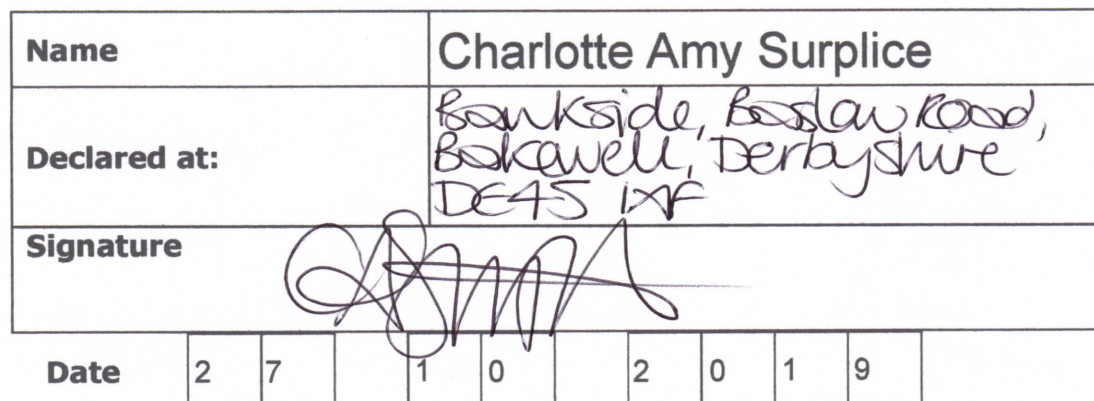 Name Charlotte Amy Surplice
Declared at: Bankside, Baslow Road,
Bakewell, Derbyshire
DE45 1AF
Signature
Date 27 10 2019